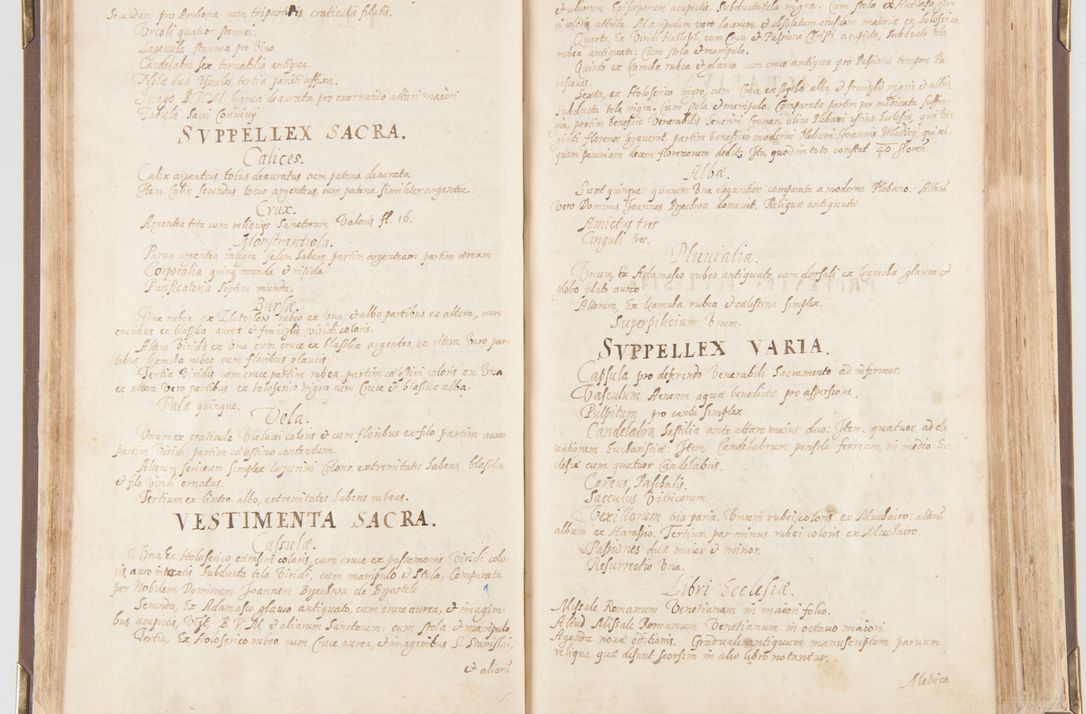 Secundum pro Ambona cum tripartitis craticulis filatis.
Urceoli quatuor stannei.
Lagenula stannea pro Vino
Candelabra sex tornatilia antiqua
Nolæ duæ Usuales tertia parieti affixa.
Imago B. V. M. lignea deaurata pro exornando altari maiori
Tabula Sacri Convivij.
SVPPELLEX SACRA.
Calices.
Calix argenteus totus deauratus cum patena deaurata
Item Calix secundus totus argenteus cum patena similiter argentea
Crux.
Argentea tota cum reliquijs Sanctorum Valoris fl. 16.
Monstrantiola.
Parva argentea integra sedem habens, partim argenteam partim æream
Corporalia quinq munda et nitida
Purificatoria Septem munda.
Bursæ
Una rubea ex Zlotoglow rubeo ex Una, et albo partibus ex altera, cum
crucibus ex blasska aurea et frangijs Viridi coloris.
Altera Viridis ex Una cum cruce ex blasska argentea, ex altera Vero par
tibus kamcha rubeo cum floribus glaucis
Tertia Viridis cum cruce partim rubea, partim cælestini coloris ex Una,
ex altera Vero partibus ex holoserico nigro cum Cruce ex blasska alba.
Pallæ quinque.
Vela.
Unum ex craticula Violacei coloris et cum floribus ex filo partim aureo
partim Viridi partim cælestino contextum.
Alterum sericeum simplex lazurini Coloris extremitates habens blasska
et filo Viridi ornatas.
Tertium ex linteo albo, extremitates habens rubeas.
VESTIMENTA SACRA.
Casulæ.
Una Ex Holoserico cæresini coloris, cum cruce ex passamonis Viridi colo-
ris auro intextis Subducta tela Viridi, cum manipulo et Stola, Comparata
per Nobilem Dominum Joannem Byechwa de
Secunda, Ex Adamasco glauco antiquato, cum cruce aurea, et imagini-
bus acupictis, Vzt. B. V. M. et aliarum Sanctarum: cum Stola et manipulo
Tertia, Ex Holoserico rubeo, cum Cruce aurea, et imaginibus S. Stanislai,
et aliorū
et aliorum Episcoporum acupictis. Subductatela nigra. Cum stola ex Muchairo glau
ci coloris attrita. Manipulum vero lacerum et obsoletum eiusdem materiæ ex holoserico
Quarta, Ex Viridi Cum Cruce et Passione Christi acupicta, Subducta tela
rubea antiquata: Cum stola et manipulo.
Quinta ex kamcha rubea et glauca cum cruce antiqua pro Passione tempore Pa
rasceues
Sexta, ex Holoserico nigro, cum Cruce ex serico albo, et frangijs nigri et albis,
Subducta tela nigra. Cum stola et manipulo. Comparata partim per mendicata suffra
gia, partim beneficio Venerabilis Severini Gomen, olim Plebani istius Ecclesiæ, qui Vi-
ginti florenos legaverat, partim beneficio moderni Plebani Joannis qui reli
quam pecuniam decem florenorum dedit; Ita, quod in toto constat 40 floren.
Albæ.
Sunt quinque: quarum Una elegantior comparata a moderno Plebano. Alterā
Vero Dominus Joannes Byechwa donavit. Reliquæ antiquatæ
Amictus tres
Cinguli tres.
Pluvialia.
Unum, Ex Adamasco rubeo antiquato, cum dorsali ex kamcha glauca et
globo filato aureo
Alterum, Ex kamcha rubea et cælestina simplex.
Superpilicium Unum.
SVPPELLEX VARIA.
Capsula pro deferendo Venerabili Sacramento ad infirmos.
Vasculum Aeneum aquæ benedictæ pro aspersione.
Pulpitum pro cantu Simplex.
Candelabra hastilia ante altare maius duo: Item quatuor ad ele
vationem Eucharistiæ: Item, Candelabrum pensile ferreum, in medio Ec
clesiæ cum quatuor Candelabris.
Cereus Paschalis.
Sacculus Viaticorum.
Vexillorum tria paria. Unum rubei coloris ex Muchairo: alterū
album ex Harasso. Tertium par minus rubei coloris ex Muchairo.
Passiones duæ maior et minor.
Resurrectio Una.
Libri Ecclesiæ.
Missale Romanum Venetianum in maiori folio.
Aliud Missale Romanum Venetianum in octavo maiori
Agenda novæ editionis. Graduale antiquum manuscriptum parvum
reliqua, quæ desunt seorsim in alio libro notantur.
Metrica